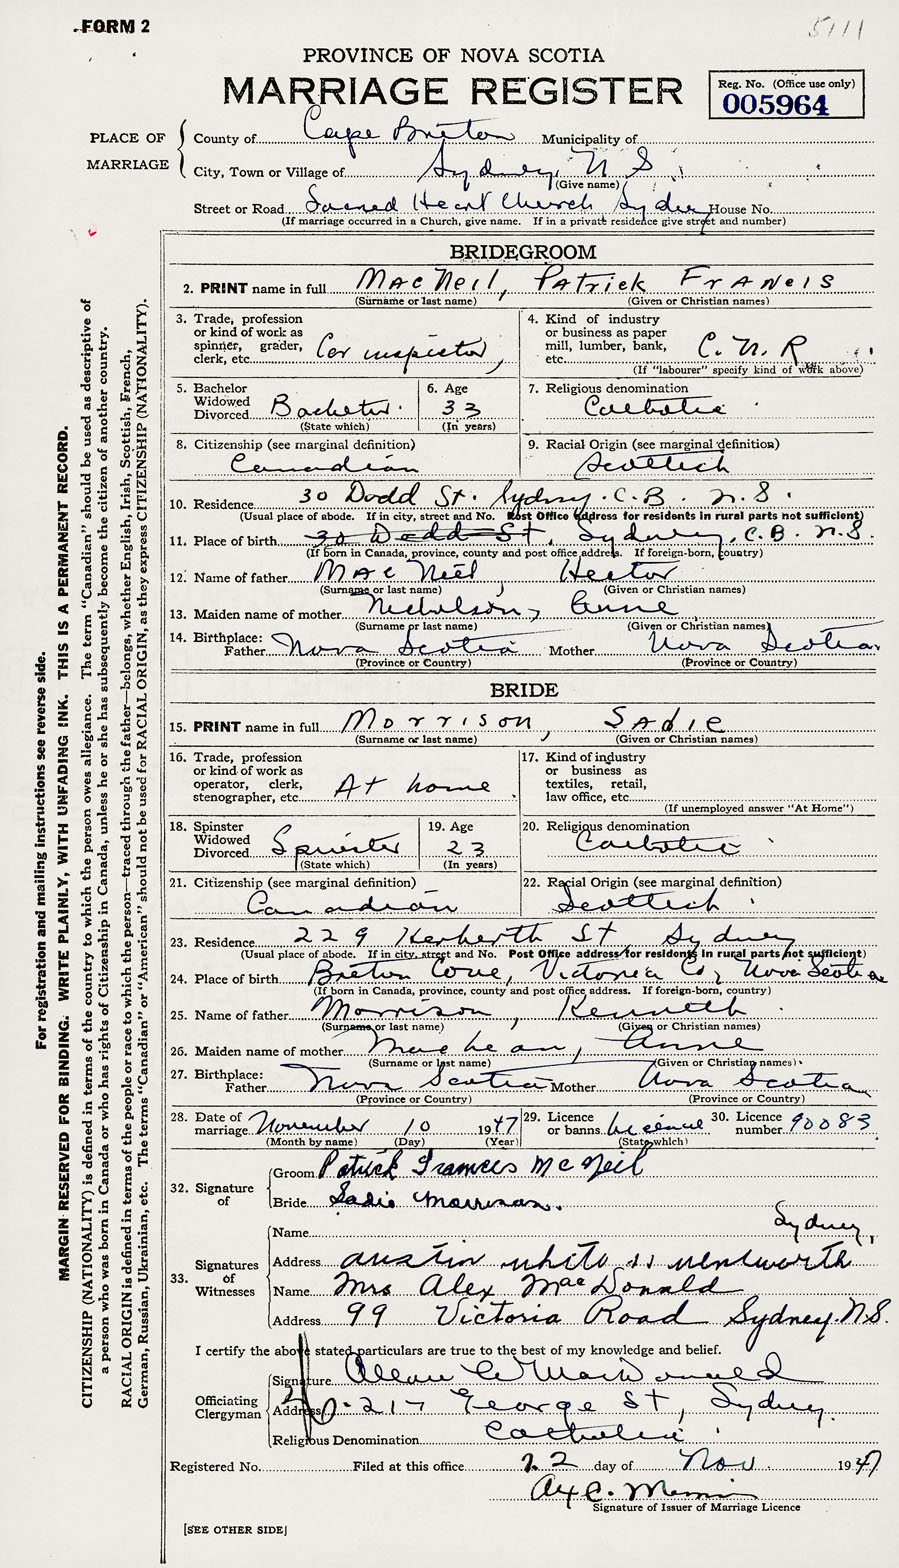 FORM 2
5111
PROVINCE OF NOVA SCOTIA
MARRIAGE REGISTER
Reg. No. (Office use only)
005964
PLACE OF MARRIAGE
County of Cape Breton Municipality of
City, Town or Village of Sydney, N S
(Give name)
Street or Road Sacred Heart Church Sydney House No.
(If marriage occurred in a Church, give name. If in a private residence give street and number)
BRIDEGROOM
2. PRINT name in full MacNeil, Patrick Francis
(Surname or last name) (Given or Christian names)
3. Trade, profession or kind of work as spinner, grader, clerk, etc. Car inspector,
4. Kind of industry or business as paper mill, lumber, bank, etc. C.N.R
(If "labourer" specify kind of work above)
5. Bachelor Widowed Divorced Bachelor.
(State which)
6. Age 33
(In years)
7. Religious denomination
Catholic
8. Citizenship (see marginal definition)
Canadian
9. Racial Origin (see marginal definition)
Scottish
10. Residence 30 Dodd St. Sydney. C.B. N.S.
(Usual place of abode. If in city, street and No. Post Office address for residents in rural parts not sufficient)
11. Place of birth 30 Dodd St, Sydney, C.B. N.S.
(If born in Canada, province, county and post office address. If foreign-born, country)
12. Name of father MacNeil, Hector
(Surname or last name) (Given or Christian names)
13. Maiden name of mother Nicholson, Anne
(Surname or last name) (Given or Christian names)
14. Birthplace: Father Nova Scotia Mother Nova Scotia
(Province or Country) (Province or Country)
BRIDE
15. PRINT name in full Morrison, Sadie
(Surname or last name) (Given or Christian names)
16. Trade, profession or kind of work as operator, clerk, stenographer, etc. At home
17. Kind of industry or business as textiles, retail, law office, etc.
(If unemployed answer "At Home")
18. Spinster Widowed Divorced Spinster
(State which)
19. Age 23
(In years)
20. Religious denomination
Catholic
21. Citizenship (see marginal definition)
Canadian
22. Racial Origin (see marginal definition)
Scottish
23. Residence 229 St Sydney
(Usual place of abode. If in city, street and No. Post Office address for residents in rural parts not sufficient)
24. Place of birth Breton Cove, Victoria Co, Nova Scotia
(If born in Canada, province, county and post office address. If foreign-born, country)
25. Name of father Morrison, Kenneth
(Surname or last name) (Given or Christian names)
26. Maiden name of mother MacLean, Anne
(Surname or last name) (Given or Christian names)
27. Birthplace: Father Nova Scotia Mother Nova Scotia
(Province or Country) (Province or Country)
28. Date of marriage November 10 1947
(Month by name) (Day) (Year)
29. Licence or banns licence
(State which)
30. Licence number 90083
32. Signature of
Groom Patrick Francis McNeil
Bride Sadie Morrison.
33. Signatures of Witnesses
Name
Sydney,
Address Austin White 11 Wentworth
Name Mrs Alex MacDonald
Address 99 Victoria Road Sydney. N.S.
I certify the above stated particulars are true to the best of my knowledge and belief.
Officiating Clergyman
Signature MacDonald
Address 217 George St, Sydney.
Religious Denomination Catholic
Registered No. Filed at this office 22 day of Nov 1947
Signature of Issuer of Marriage Licence
[SEE OTHER SIDE]
For registration and mailing instructions see reverse side.
MARGIN RESERVED FOR BINDING. WRITE PLAINLY, WITH UNFADING INK. THIS IS A PERMANENT RECORD.
CITIZENSHIP (NATIONALITY) is defined in terms of the country to which the person owes allegiance. The term "Canadian" should be used as descriptive of
a person who was born in Canada or who has rights of Citizenship in Canada, unless he or she has subsequently become the citizen of another country.
RACIAL ORIGIN is defined in terms of the people or race to which the person—traced through the father—belongs, whether English, Irish, Scottish, French,
German, Russian, Ukrainian, etc. The terms "Canadian" or "American" should not be used for RACIAL ORIGIN, as they express CITIZENSHIP (NATIONALITY).